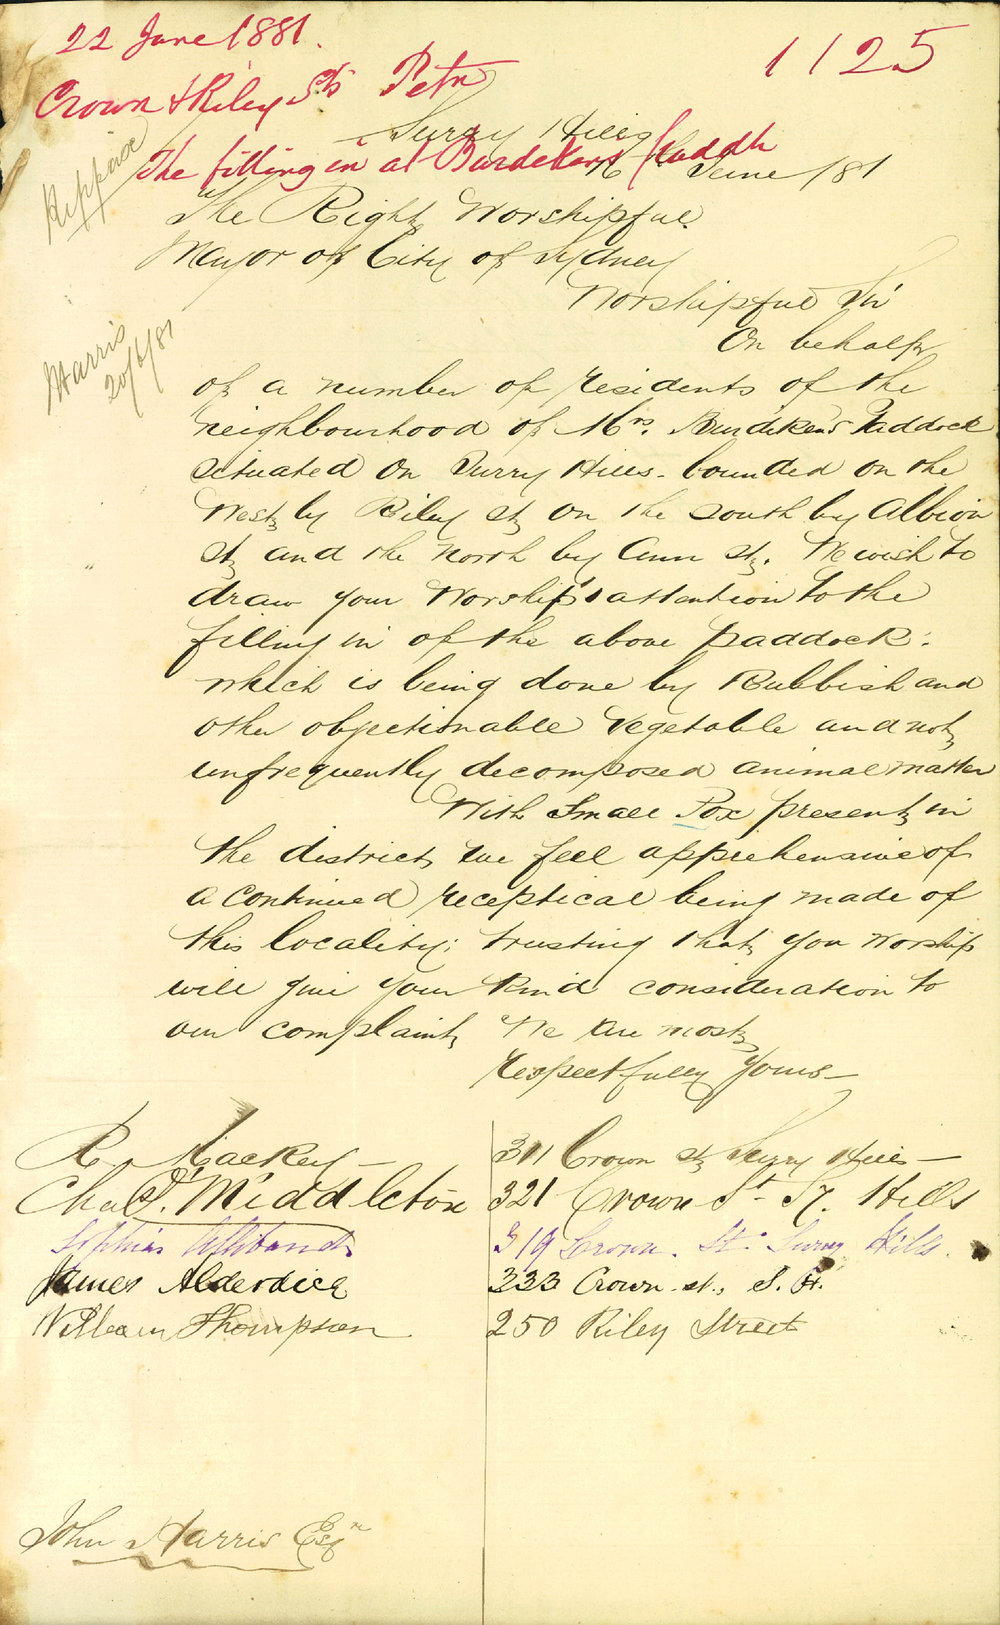 22 June 1881.
1125
Crown & Riley Sts Petn
Surry Hills
The filling in at Burdekens Paddk
June /81
Hippaise
The Right Worshipful
Mayor of City of Sydney
Worshipful Sir
Harris
20/6/81
On behalf
of a number of residents of the
neighbourhood of Mrs. Burdekens Paddock
situated on Surry Hills - bounded on the
West by Riley st on the south by Albion
st and the north by Ann st. We wish to
draw your Worship's attention to the
filling in of the above paddock.
which is being done by Rubbish and
other objectionable vegetable and not
unfrequently decomposed animal matter
With Small Pox present in
the district we feel apprehensive of
a continued receptical being made of
this locality; trusting that you Worship
will give your kind consideration to
our complaint We are most
respectfully yours —
R. Mackey — 311 Crown st Surry Hills —
Chas. J. Middleton 321 Crown St. Sy. Hills
319 Crown. St. Surry Hills.
James Alderdice 333 Crown st., S. H.
William Thompson 250 Riley Street
John Harris Esqre